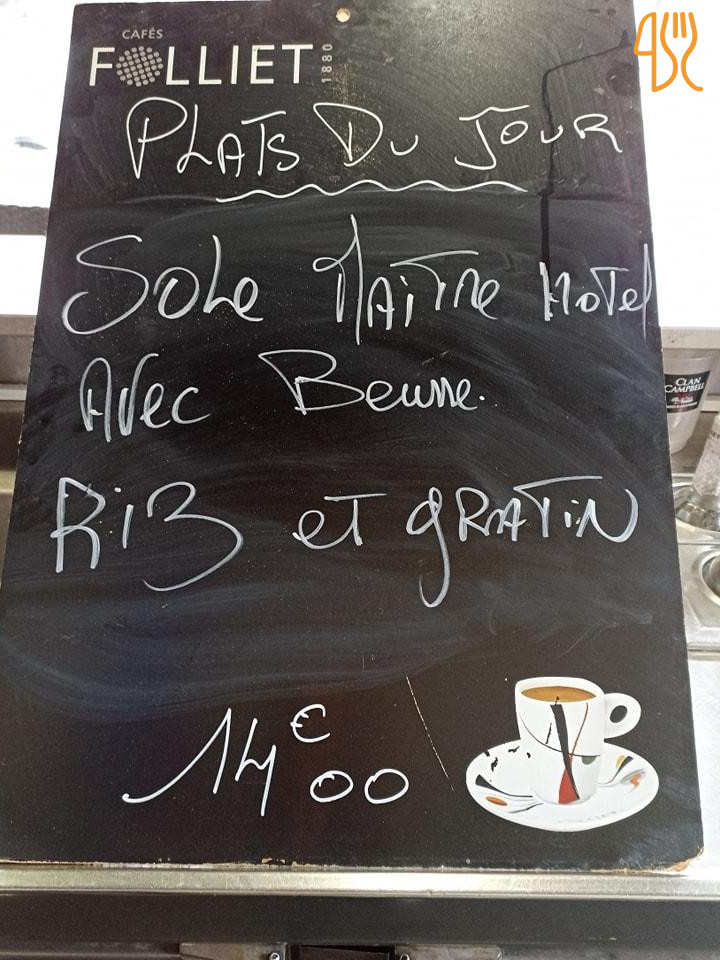 CAFÉS
FOLLIET
1880
PLATS DU JOUR
Sole Maître Hotel
Avec Beurre.
Riz et gratin
14€00
CLAN
CAMPBELL